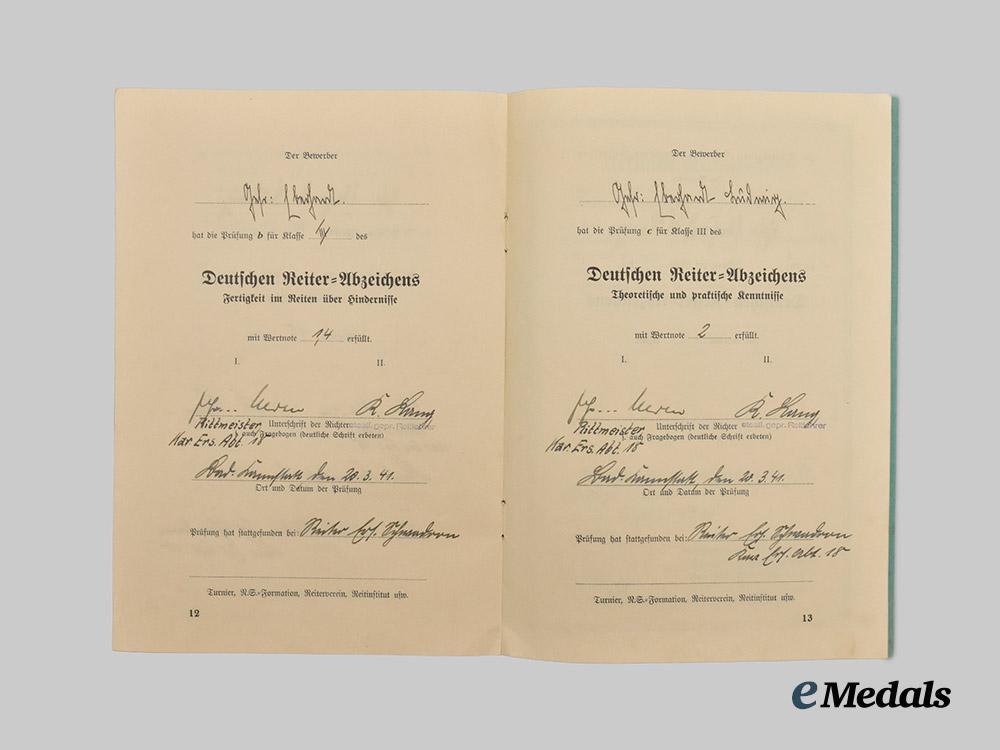 Der Bewerber
Gefr: Eberhardt.
hat die Prüfung b für Klasse III des
Deutschen Reiter=Abzeichens
Fertigkeit im Reiten über Hindernisse
mit Wertnote 1,4 erfüllt.
I. II.
K. Haug
Rittmeister Unterschrift der Richter staatl. gepr. Reitlehrer
u. auch Fragebogen (deutliche Schrift erbeten)
Kav Ers. Abt. 18
Bad-Cannstatt, den 20.3.41.
Ort und Datum der Prüfung
Prüfung hat stattgefunden bei: Reiter Ers. Schwadron
Turnier, N.S.=Formation, Reiterverein, Reitinstitut usw.
12
Der Bewerber
Gefr: Eberhardt Ludwig.
hat die Prüfung c für Klasse III des
Deutschen Reiter=Abzeichens
Theoretische und praktische Kenntnisse
mit Wertnote 2 erfüllt.
I. II.
K. Haug
Rittmeister Unterschrift der Richter staatl. gepr. Reitlehrer
u. auch Fragebogen (deutliche Schrift erbeten)
Kav Ers. Abt. 18
Bad-Cannstatt, den 20.3.41.
Ort und Datum der Prüfung
Prüfung hat stattgefunden bei: Reiter Ers. Schwadron
Kav. Ers. Abt. 18
Turnier, N.S.=Formation, Reiterverein, Reitinstitut usw.
13
eMedals